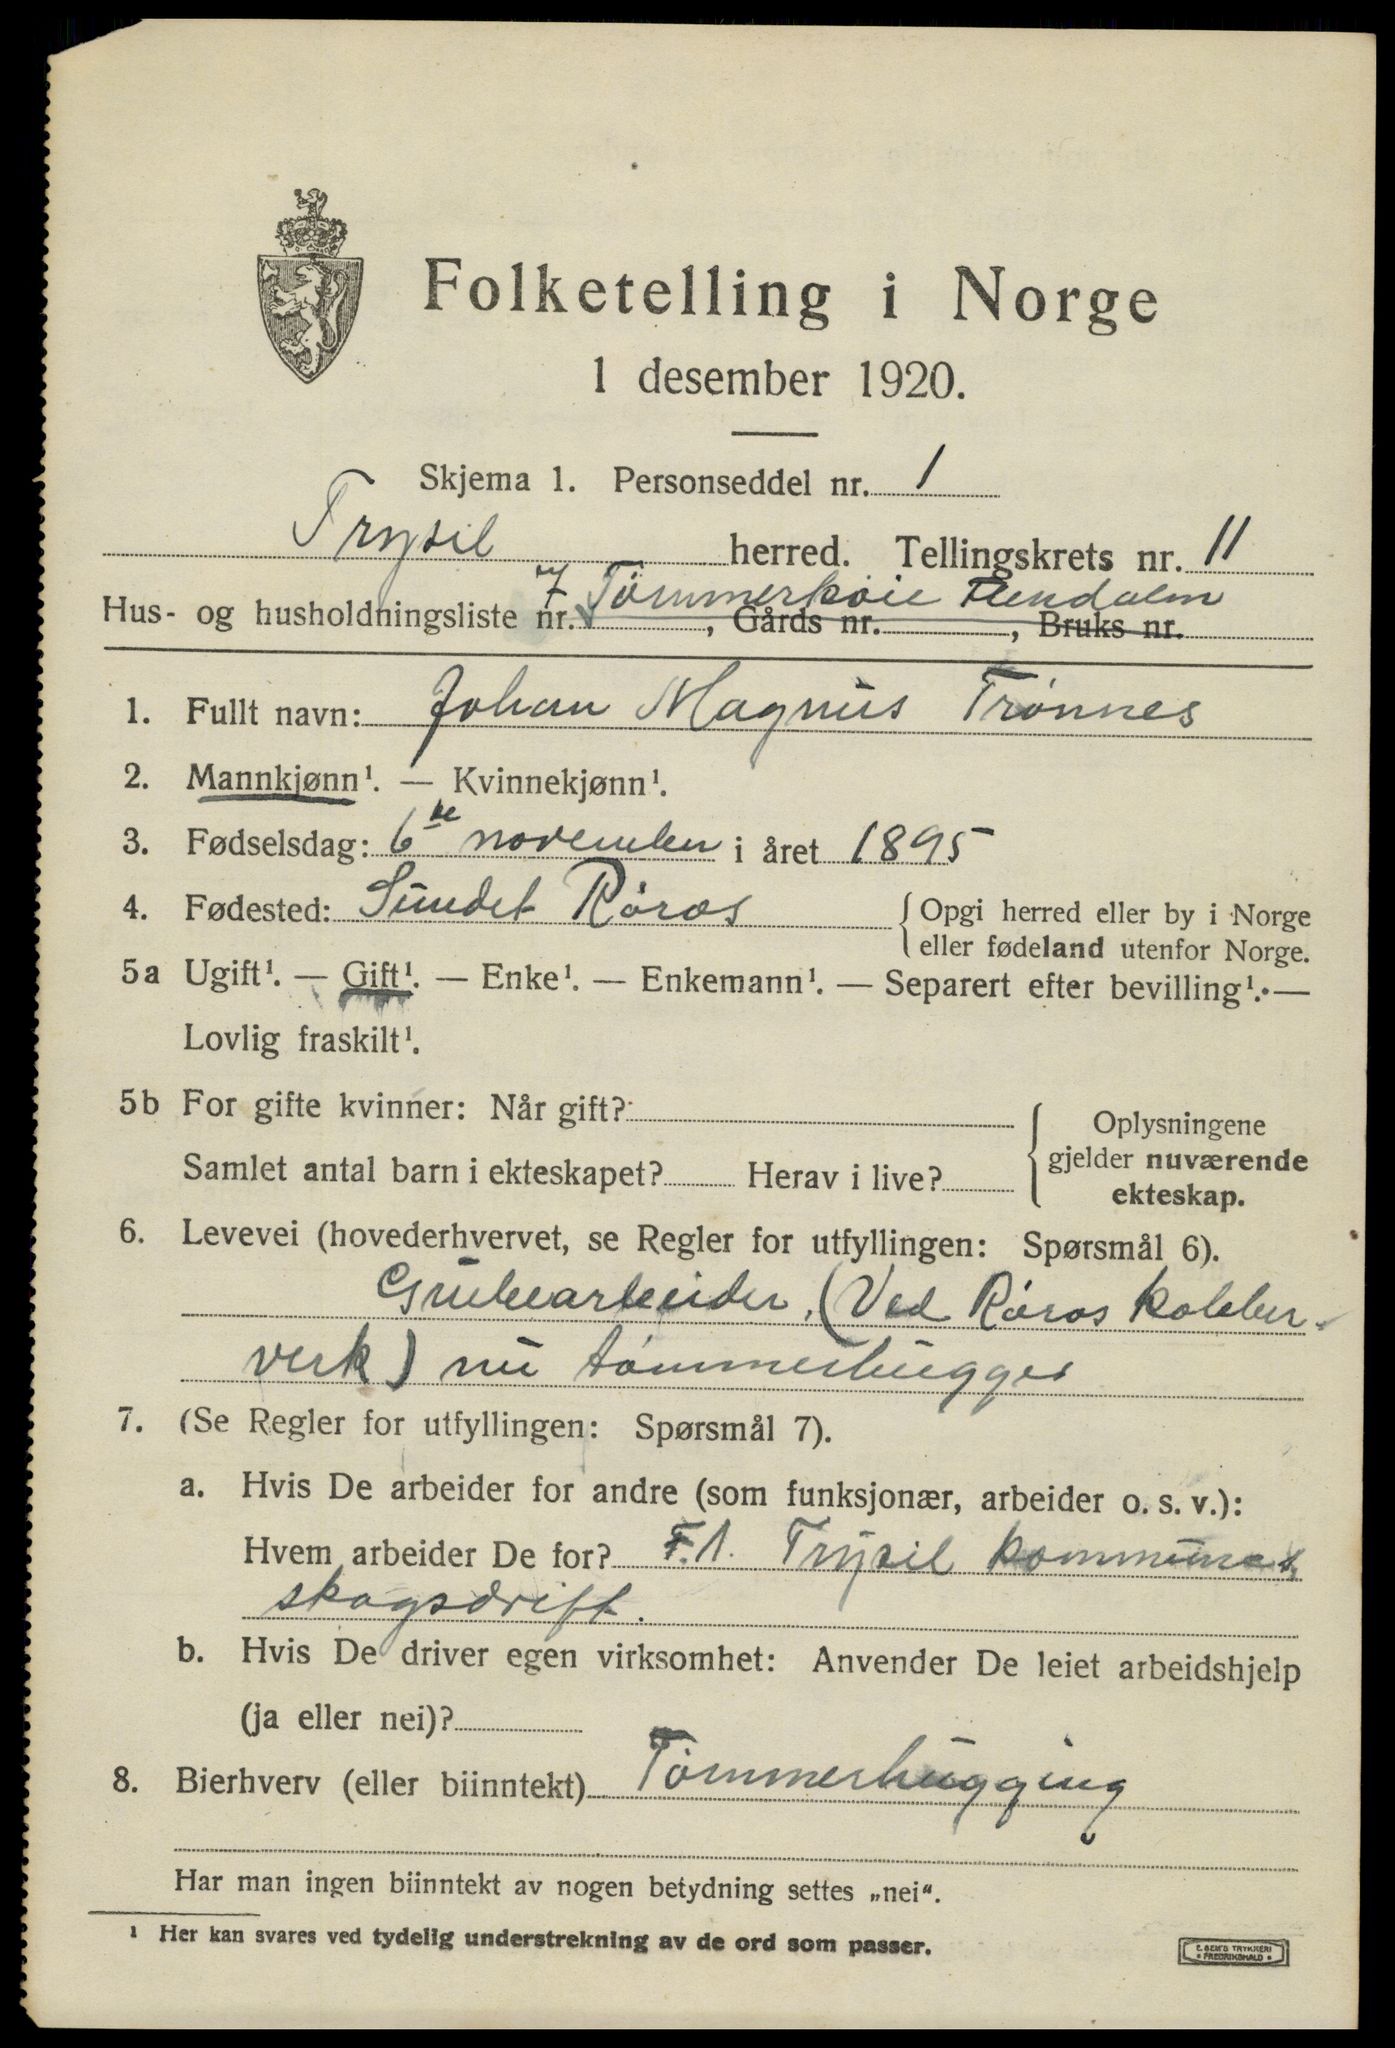 Folketelling i Norge
1 desember 1920.
Skjema 1. Personseddel nr. 1
Trysil herred. Tellingskrets nr. 11
7 Tømmerkoie
Hus- og husholdningsliste nr. , Gårds nr. , Bruks nr.
1. Fullt navn: Johan Magnus Trønnes
2. Mannkjønn¹. — Kvinnekjønn¹.
3. Fødselsdag: 6te november i året 1895
4. Fødested: Sundet Røros
{ Opgi herred eller by i Norge
eller fødeland utenfor Norge.
5a Ugift¹. — Gift¹. — Enke¹. — Enkemann¹. — Separert efter bevilling¹. —
Lovlig fraskilt¹.
5b For gifte kvinner: Når gift?
Samlet antal barn i ekteskapet? Herav i live?
{ Oplysningene
gjelder nuværende
ekteskap.
6. Levevei (hovederhvervet, se Regler for utfyllingen: Spørsmål 6).
Grubearbeider, (Ved Røros kobber-
verk) nu tømmerhugger
7. (Se Regler for utfyllingen: Spørsmål 7).
a. Hvis De arbeider for andre (som funksjonær, arbeider o. s. v.):
Hvem arbeider De for? Trysil kommunes
skogsdrift.
b. Hvis De driver egen virksomhet: Anvender De leiet arbeidshjelp
(ja eller nei)?
8. Bierhverv (eller biinntekt) Tømmerhugging
Har man ingen biinntekt av nogen betydning settes „nei“.
¹ Her kan svares ved tydelig understrekning av de ord som passer.
E. SEM'S TRYKKERI
• FREDRIKSHALD •